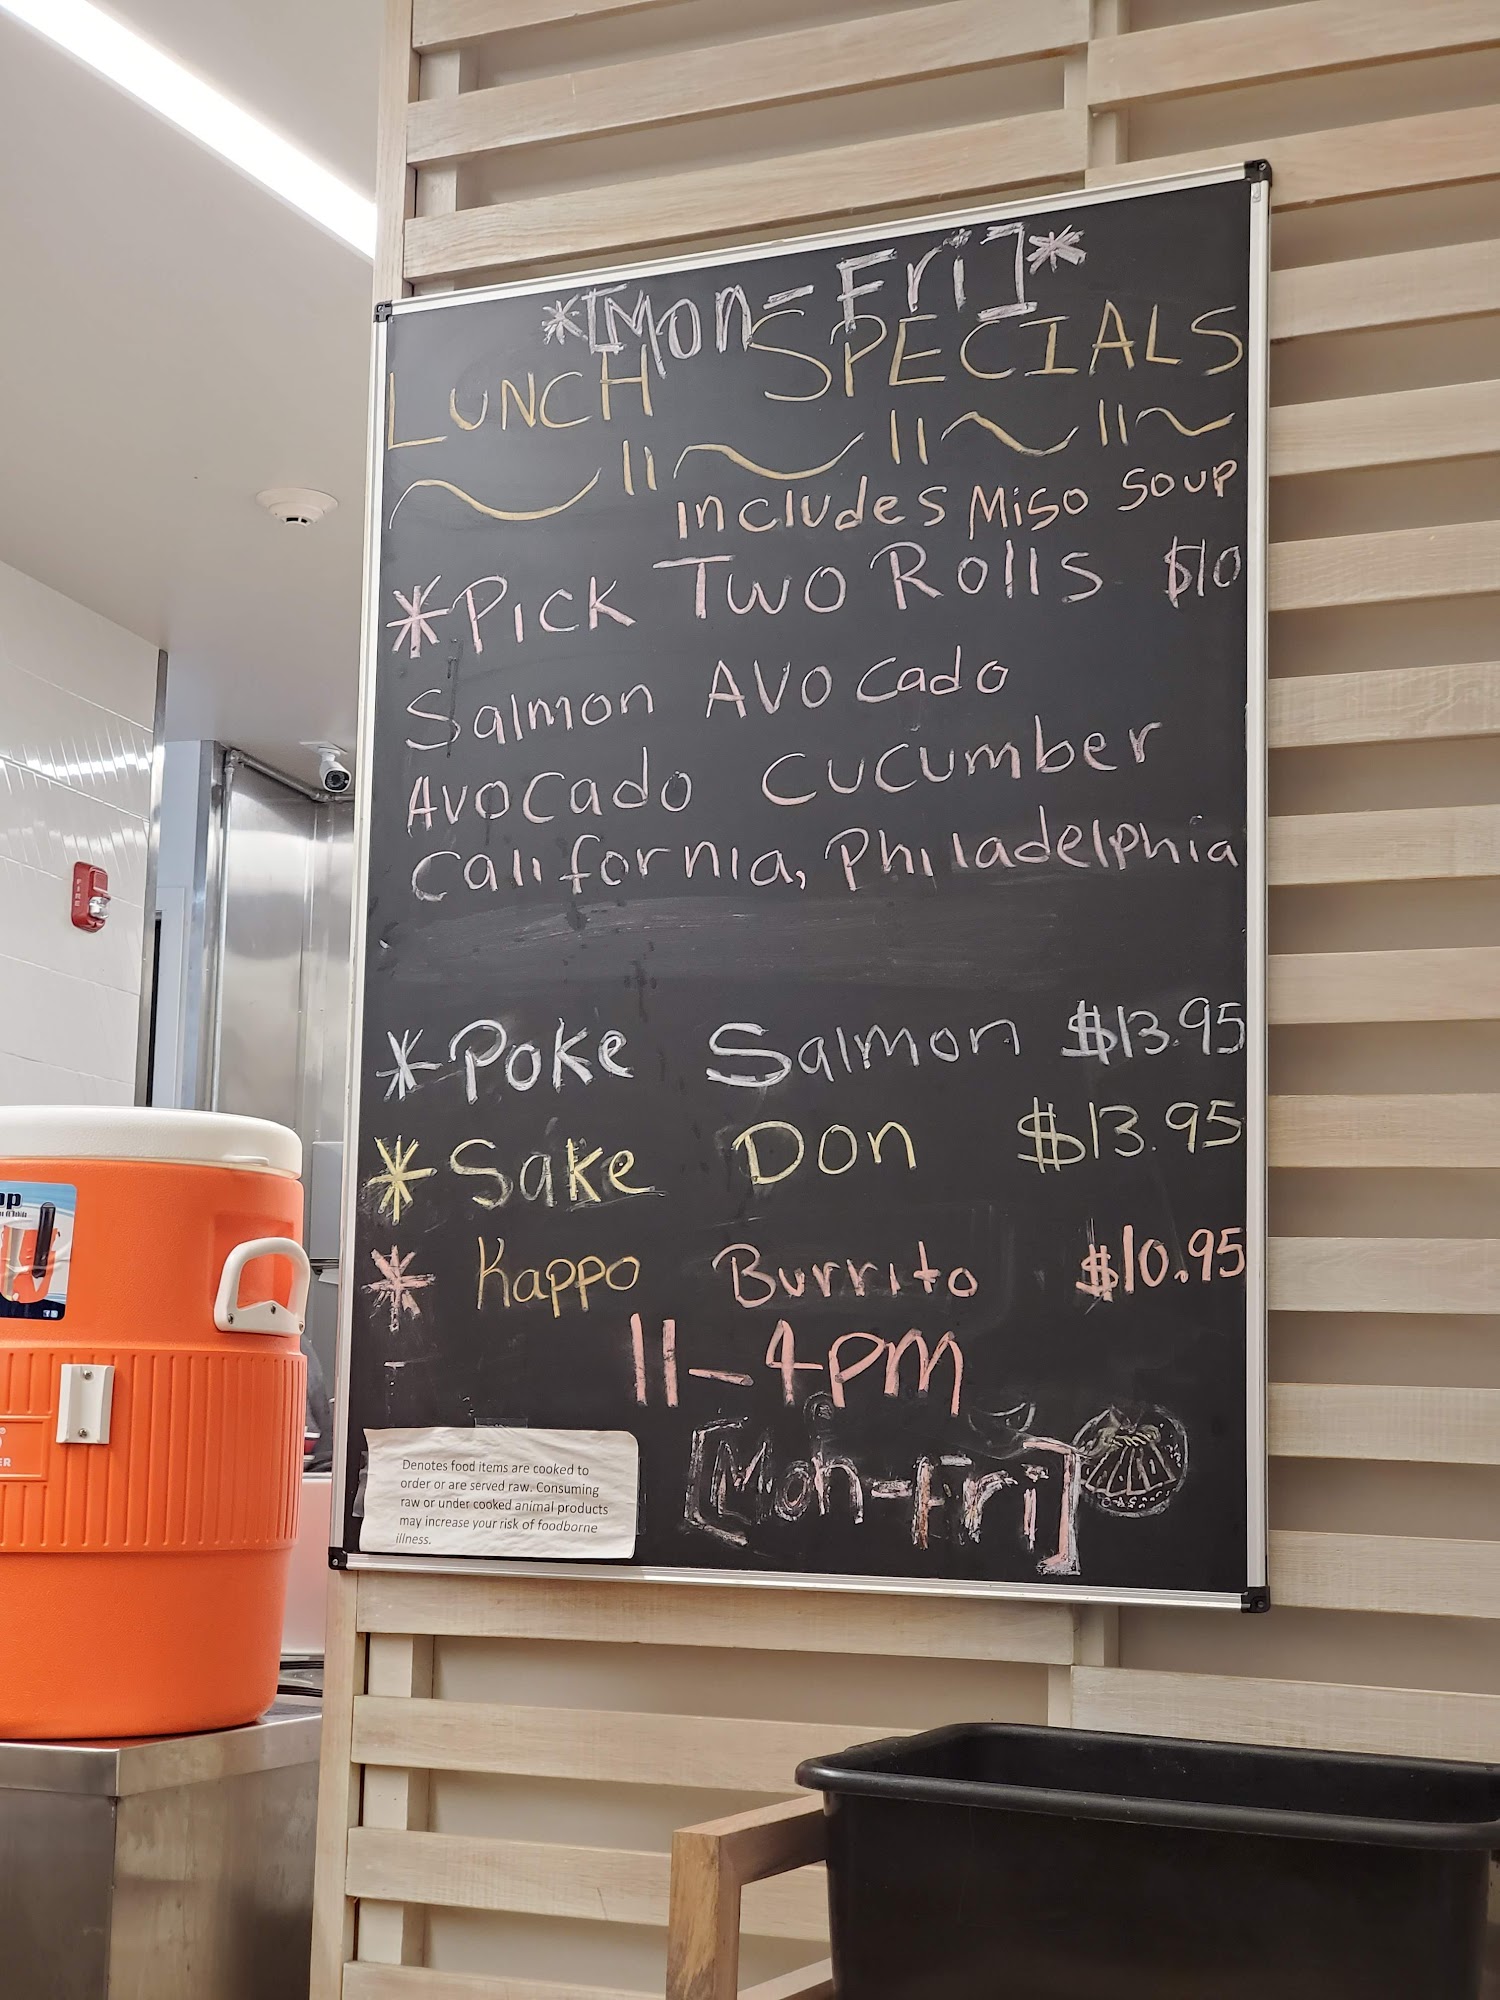 *[Mon-Fri]*
LUNCH SPECIALS
includes Miso Soup
*PICK TWO ROllS $10
Salmon AVOcado
AVOCado CUCUmber
California, Philadelphia
*POKe Salmon $13.95
*Sake DON $13.95
* Kappo Burrito $10.95
11-4PM
[Mon-Fri]
Denotes food items are cooked to
order or are served raw. Consuming
raw or under cooked animal products
may increase your risk of foodborne
illness.
FIRE